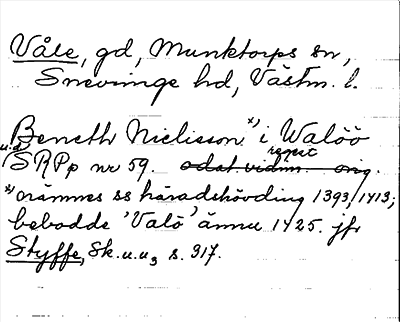 Våle, gd, Munktorps sn,
Snevinge hd, Västm. l.
Beneth Nielisson x) i Walöö
u.d. SRPp nr 59. odat. vidim. regest orig.
x) nämnes ss häradshövding 1393, 1413;
bebodde 'Valö' ännu 1425. jfr
Styffe, Sk. u. u., s. 317.